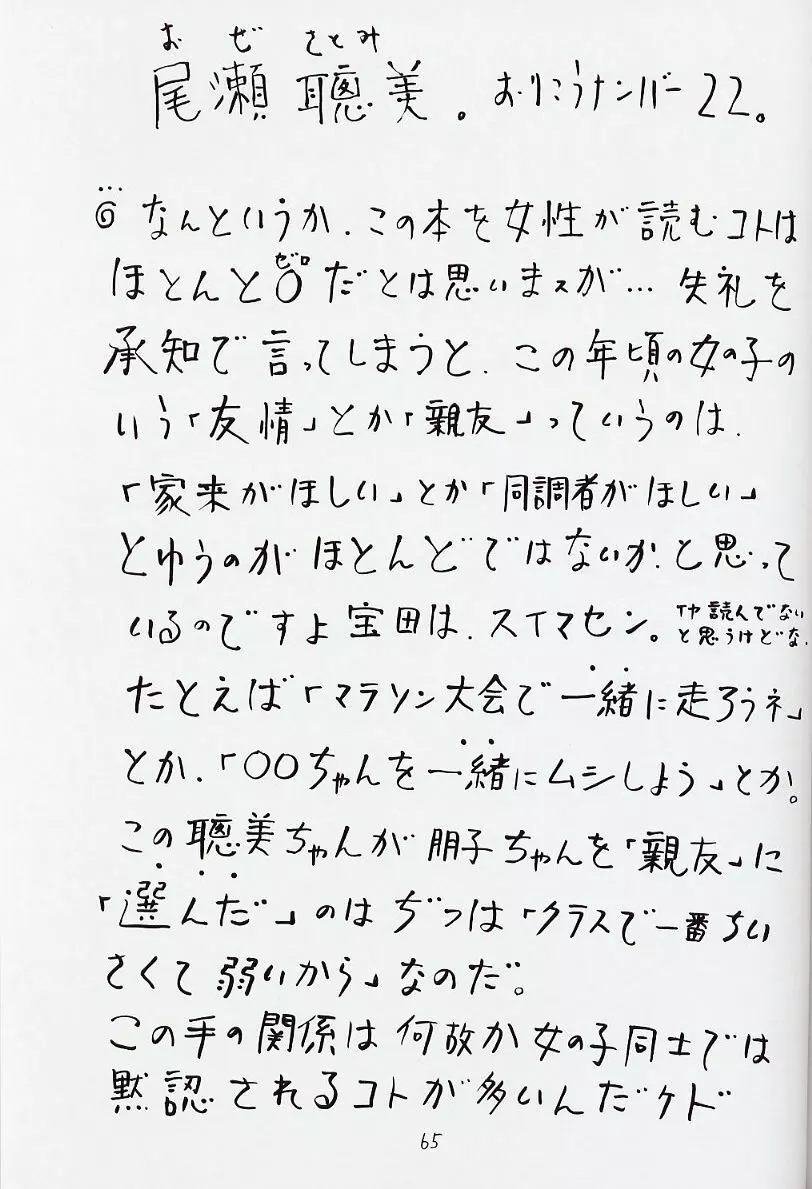 おぜ さとみ
尾瀬 聰美。おりこうナンバー22。
…
◎ なんというか、この本を女性が読むコトは
ゼロ
ほとんど0だとは思いまスが…失礼を
承知で言ってしまうと、この年頃の女の子の
いう「友情」とか「親友」っていうのは、
「家来がほしい」とか「同調者がほしい」
とゆうのがほとんどではないか?と思って
いるのですよ宝田は、スイマセン。
イヤ読んでない
と思うけどな、
たとえば「マラソン大会で一緒に走ろうネ」
とか、「〇〇ちゃんを一緒にムシしよう」とか。
この聰美ちゃんが朋子ちゃんを「親友」に
「選んだ」のはぢつは「クラスで一番ちい
さくて弱いから」なのだ。
この手の関係は何故か女の子同士では
黙認されるコトが多いんだケド
65